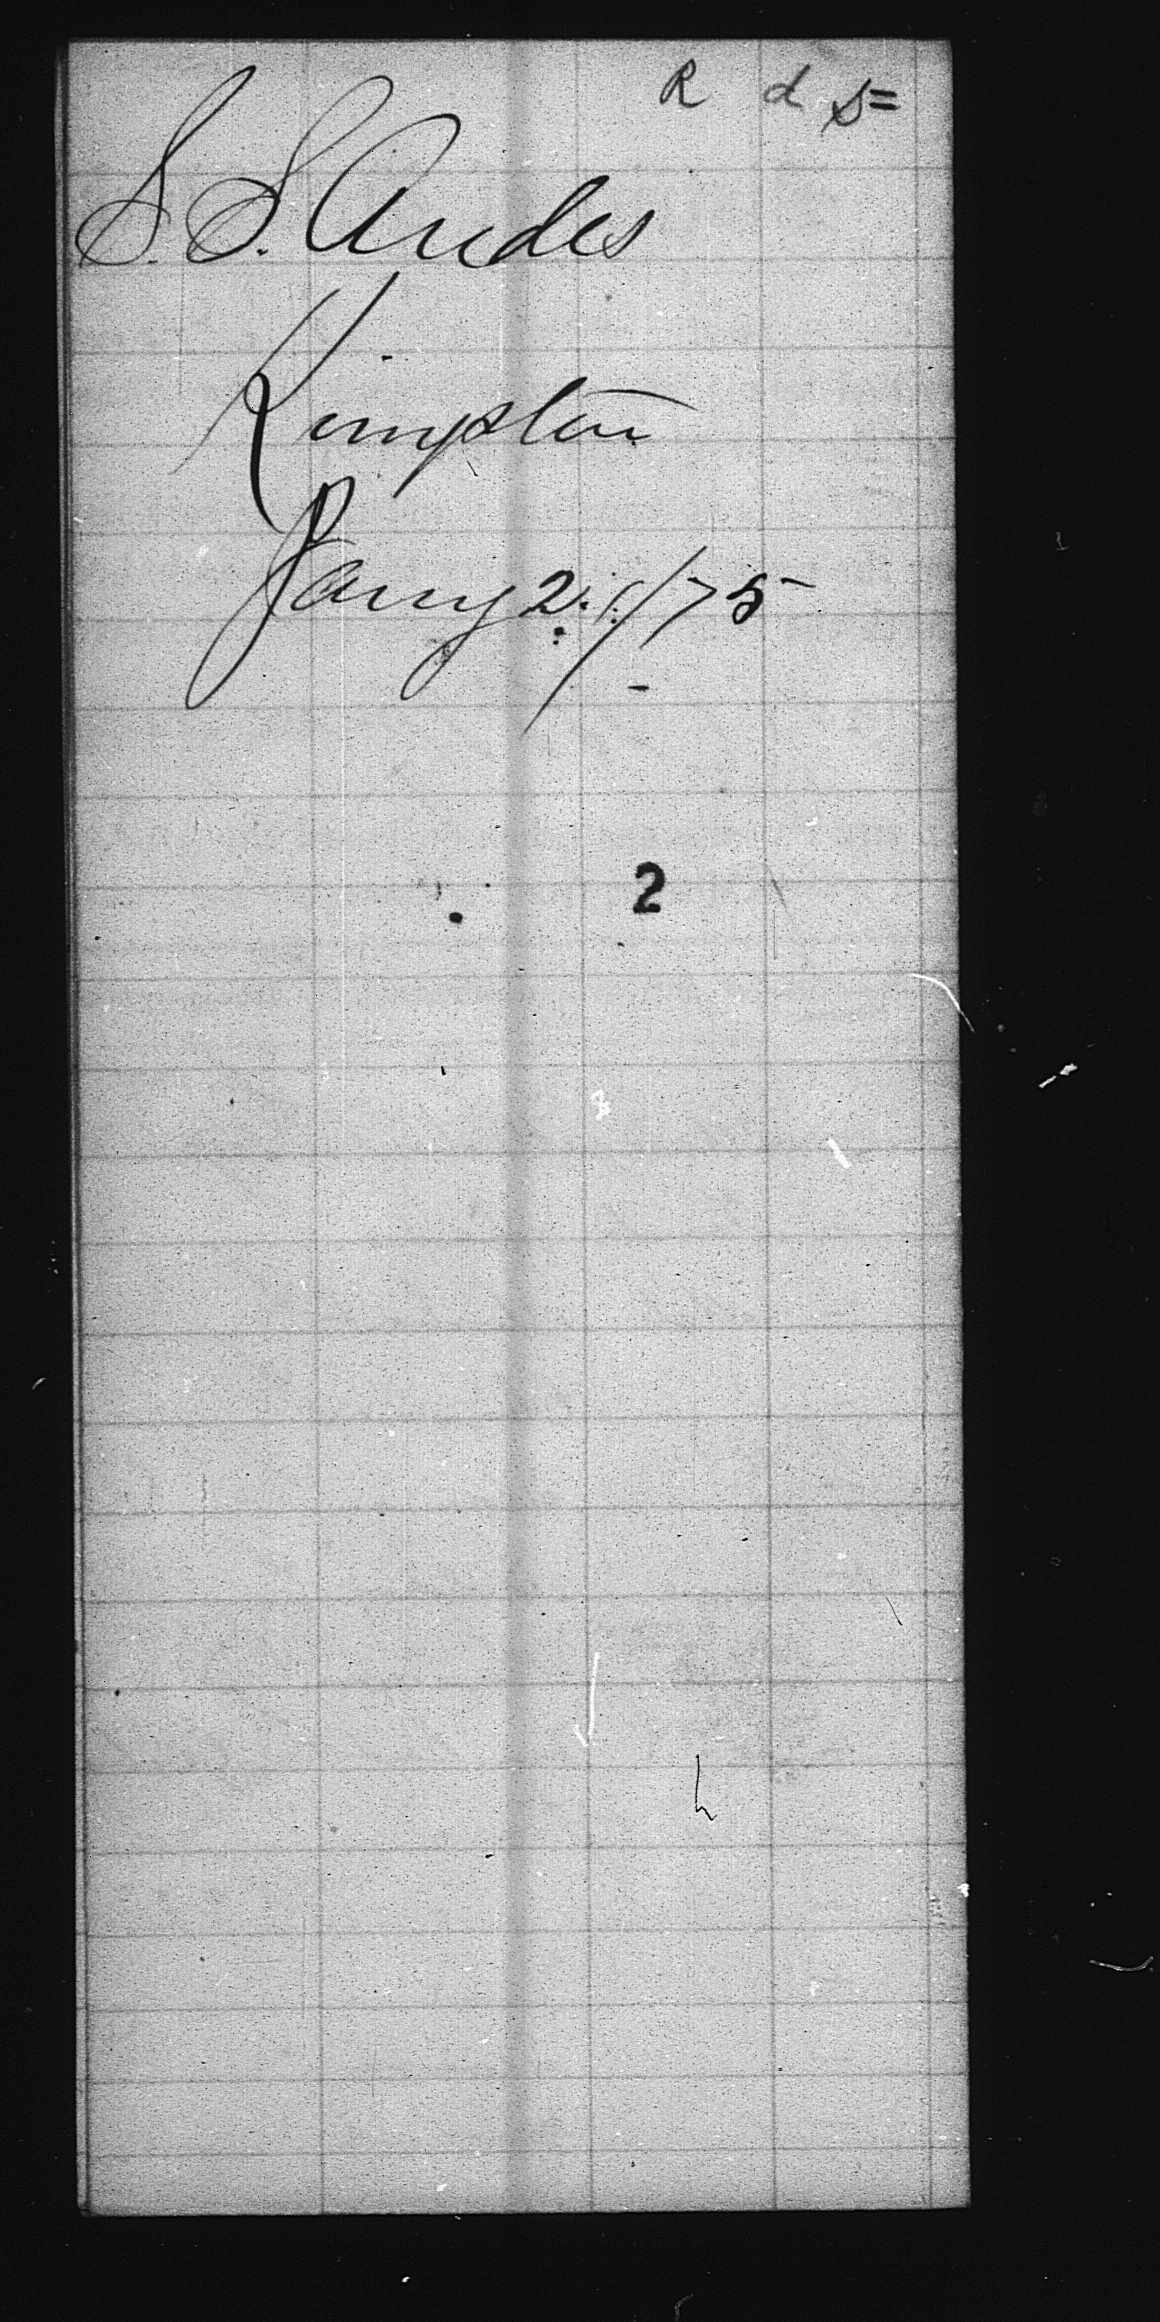 R d 5=
S. S. Andes
Kingston
Jany 2.1/75
2